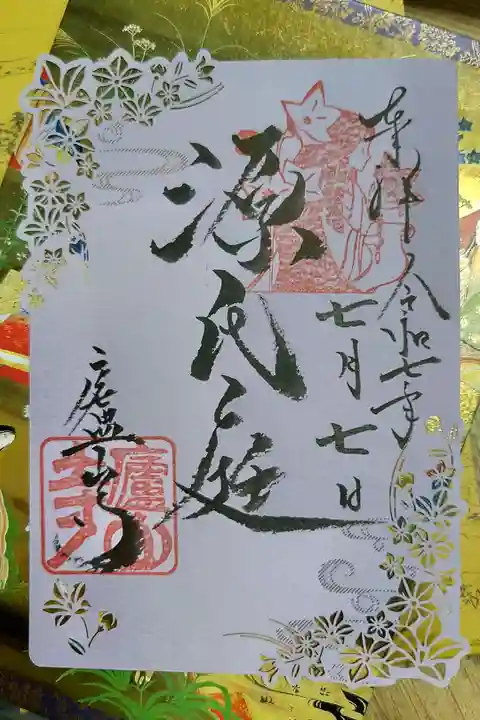 奉拝 令和七年
七月七日
源氏之庭
廬山寺